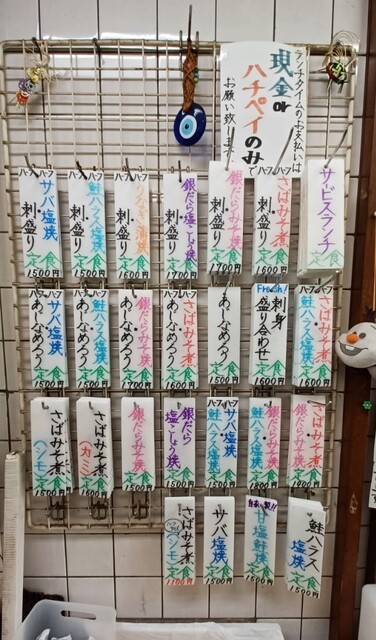 ランチタイムのお支払いは
現金or
ハチペイのみ
お願い致します
サービスランチ
定食
ハーフ ハーフ
さばみそ煮
刺盛り
定食
1600円
銀だらみそ焼
刺盛り
定食
1700円
銀だら塩こしょう焼
刺盛り
定食
1700円
ハーフ ハーフ
刺盛り
定食
1600円
ハーフ ハーフ
鮭ハラス塩焼
刺盛り
定食
1500円
ハーフ ハーフ
サバ塩焼
刺盛り
定食
1500円
ハーフ ハーフ
さばみそ煮
鮭ハラス塩焼
定食
1600円
Fresh!
刺身
盛り合わせ
定食
1600円
あじなめろう
定食
1500円
ハーフ ハーフ
さばみそ煮
あじなめろう
定食
1600円
ハーフ ハーフ
銀だらみそ焼
あじなめろう
定食
1700円
ハーフ ハーフ
鮭ハラス塩焼
あじなめろう
定食
1500円
ハーフ ハーフ
サバ塩焼
あじなめろう
定食
1500円
さばみそ煮
銀だらみそ焼
定食
鮭ハラス塩焼
銀だらみそ焼
定食
ハーフ ハーフ
サバ塩焼
鮭ハラス塩焼
定食
1500円
銀だら
塩こしょう焼
定食
銀だらみそ焼
定食
さばみそ煮
(カミ)
定食
さばみそ煮
(シモ)
定食
鮭ハラス
塩焼
定食
1500円
自家製!!
甘塩鮭焼
定食
1500円
サバ塩焼
定食
1500円
さばみそ煮
定食
1100円